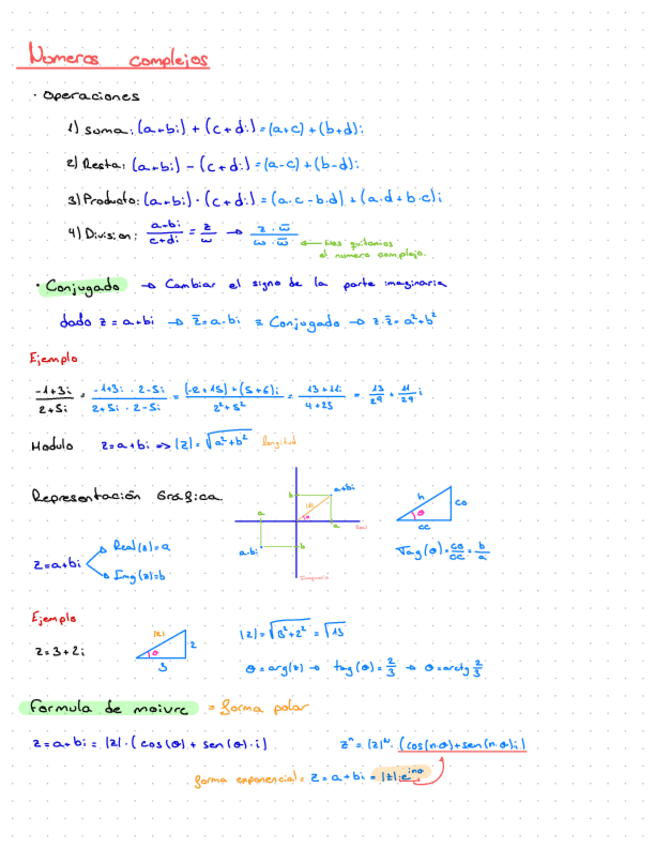 Numeros complejos
· Operaciones
1) Suma: (a+bi) + (c+di) = (a+c) + (b+d)i
2) Resta: (a+bi) - (c+di) = (a-c) + (b-d)i
3) Producto: (a+bi) · (c+di) = (a.c - b.d) + (a.d + b.c)i
4) Division: a+bi/c+di = z/w → z · w̅/w · w̅ ← Nos quitamos
el numero complejo.
· Conjugado → Cambiar el signo de la parte imaginaria
dado z = a+bi → z̅ = a-bi ≡ Conjugado → z·z̅ = a²+b²
Ejemplo
-1+3i/2+5i = -1+3i · 2-5i/2+5i · 2-5i = (-2+15)+(5+6)i/2²+5² = 13+11i/4+25 = 13/29 + 11/29 i
Modulo z = a+bi => |z| = √a²+b² longitud
Representación Grafica
b a+bi |z| θ a Real
a a-bi b Imaginaria
h co θ cc
z = a+bi Real(z) = a
Img(z) = b
Tag(θ) = co/cc = b/a
Ejemplo
z = 3+2i |z| θ 2 3 |z| = √3²+2² = √13
θ = arg(z) → tag(θ) = 2/3 → θ = arctg 2/3
Formula de moivre = forma polar
z = a+bi = |z| · (cos(θ) + sen(θ)·i) zⁿ = |z|ⁿ · (cos(n·θ) + sen(n·θ)i)
forma exponencial = z = a+bi = |z|·e^inθ